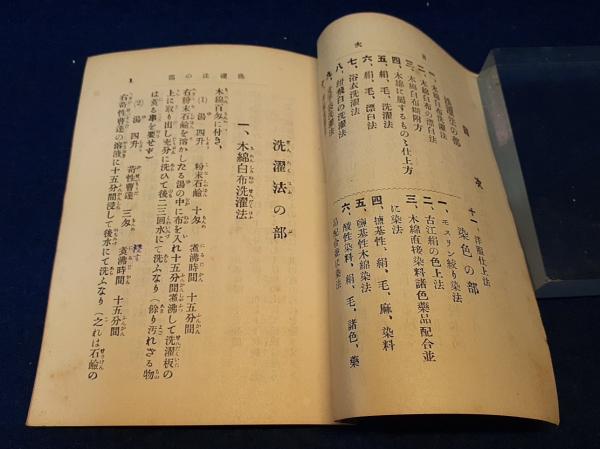 目
次
洗濯法の部
一、木綿白布洗濯法
二、木綿白布の漂白法
三、木綿白布糊附方
四、木綿に属するもの〻仕上方
五、絹、毛、洗濯法
六、絹、毛、漂白法
七、浴衣洗濯法
八、紺飛白の洗濯法
十一、洋服仕上法
染色の部
一、モスリン絞り染法
二、古江絹の色上法
三、木綿直接染料諸色薬品配合並
に染法
四、塩基性、絹、毛、麻、染料
五、塩基性木綿染法
六、酸性染料、絹、毛、諸色、薬
品配合並に染法
洗濯法の部
洗濯法の部
一、木綿白布洗濯法
木綿百匁に付き、
(1) 湯 四升 粉末石鹼 十匁 煮沸時間 十五分間
右粉末石鹼を溶かしたる湯の中に布を入れ十五分間煮沸して洗濯板の
上に取り出し充分に洗ひて後二三回水にて洗ふなり(余り汚れざる物
は煮る事を要せず)
(2) 湯 四升 苛性曹達 三匁 煮沸時間 十五分間
右苛性曹達の溶液に十五分間浸して後水にて洗ふなり(之れは石鹼の
1